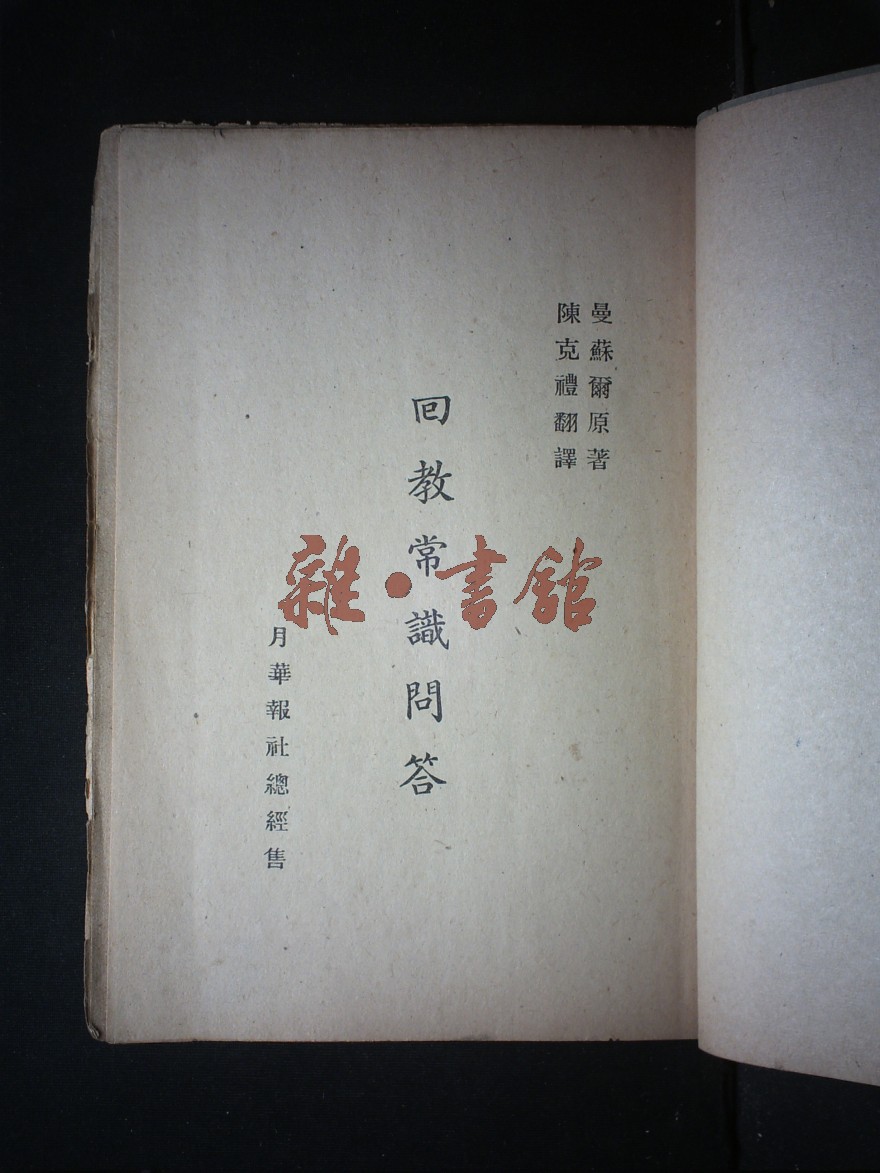 曼蘇爾原著
陳克禮翻譯
回教常識問答
月華報社總經售
雜·書館